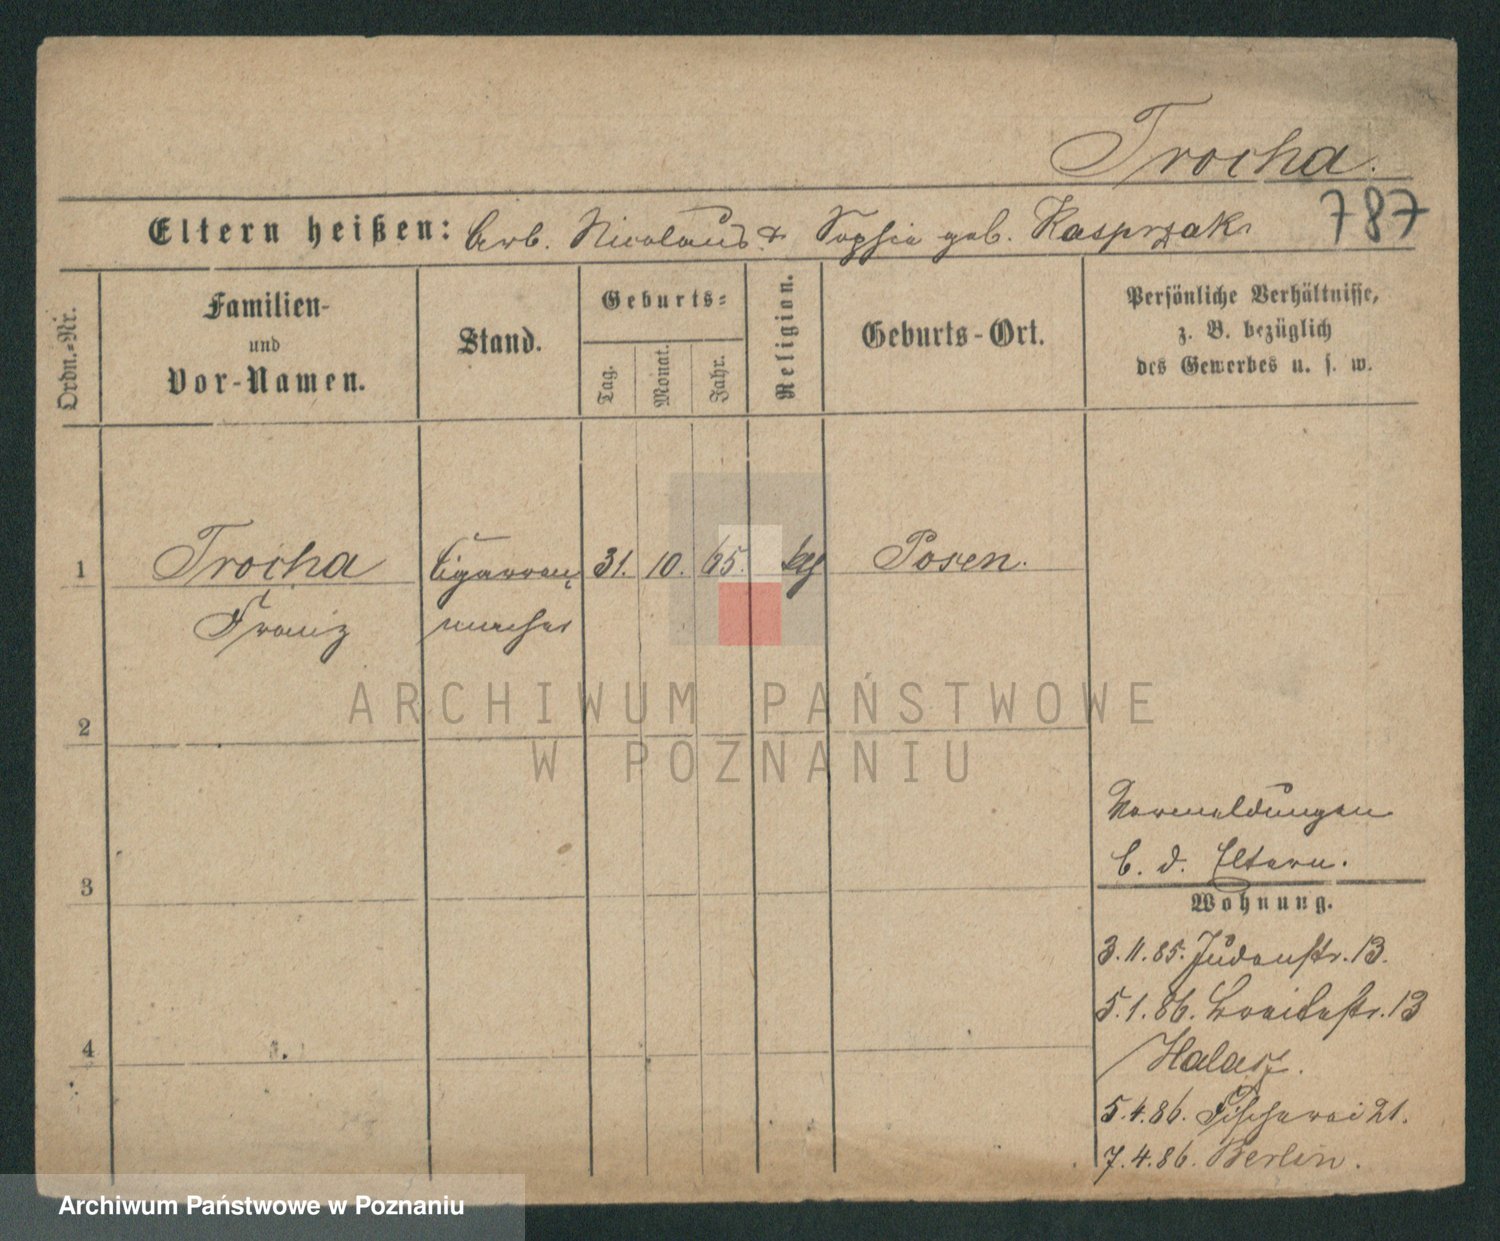 Trocha.
787
Eltern heißen: Arb. Nicolaus & Sophie geb. Kasprzak
Ordn.-Nr.
Familien-
und
Vor-Namen.
Stand.
Geburts-
Tag.
Monat.
Jahr.
Religion.
Geburts-Ort.
Persönliche Verhältnisse,
z. B. bezüglich
des Gewerbes u. s. w.
1 Trocha Cigarren 31. 10. 65. kg Posen.
Franz macher
ARCHIWUM PAŃSTWOWE
W POZNANIU
2
3
4
Vormeldungen
b. d. Eltern.
Wohnung.
3.11.85. Judenstr. 13.
5.1.86. Breitestr. 13
Halasz.
5.4.86. Fischerei 21.
7.4.86. Berlin.
Archiwum Państwowe w Poznaniu